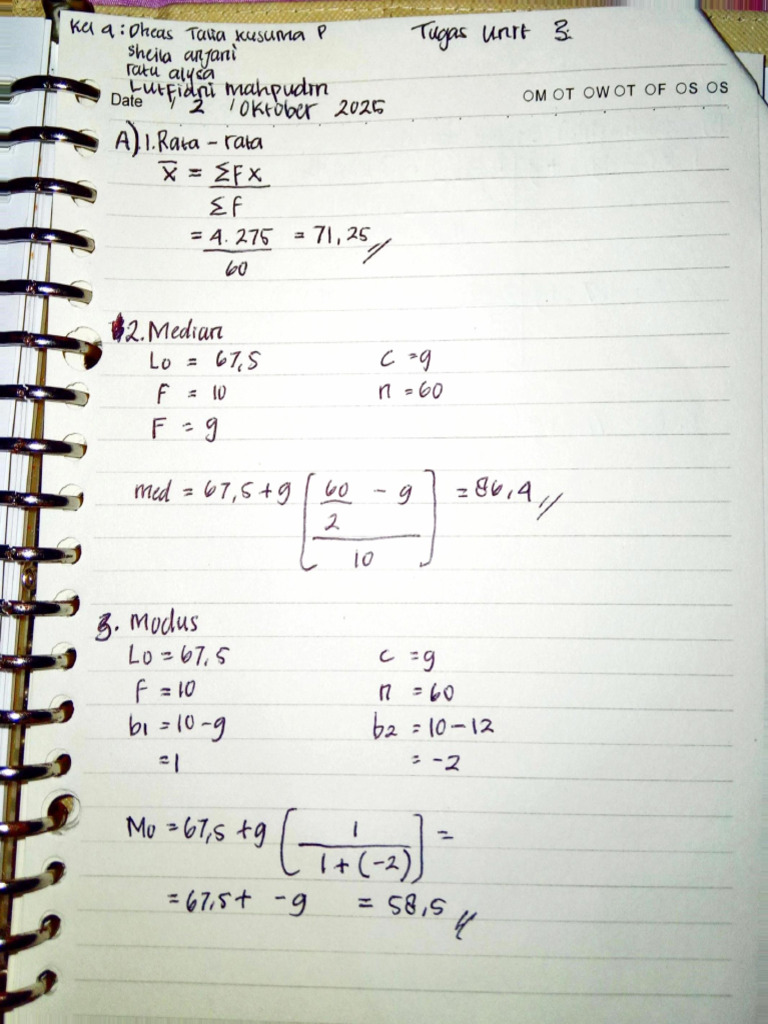 Kel 4 : Dheas Talia Kusuma P Tugas Unit 3.
Sheila anjani
ratu alysa
Lutfidni mahpudin
Date , 2 / Oktober 2025 OM OT OW OT OF OS OS
A) 1. Rata - rata
x̄ = ΣFx
ΣF
= 4.275 = 71,25 //
60
2. Median
Lo = 67,5 C = 9
F = 10 n = 60
F = 9
med = 67,5 + 9 [ 60 - 9 ] = 86,4 //
2
10
3. Modus
Lo = 67,5 C = 9
f = 10 n = 60
b1 = 10 - 9 b2 = 10 - 12
= 1 = -2
Mo = 67,5 + 9 [ 1 ] =
1 + (-2)
= 67,5 + -9 = 58,5 //